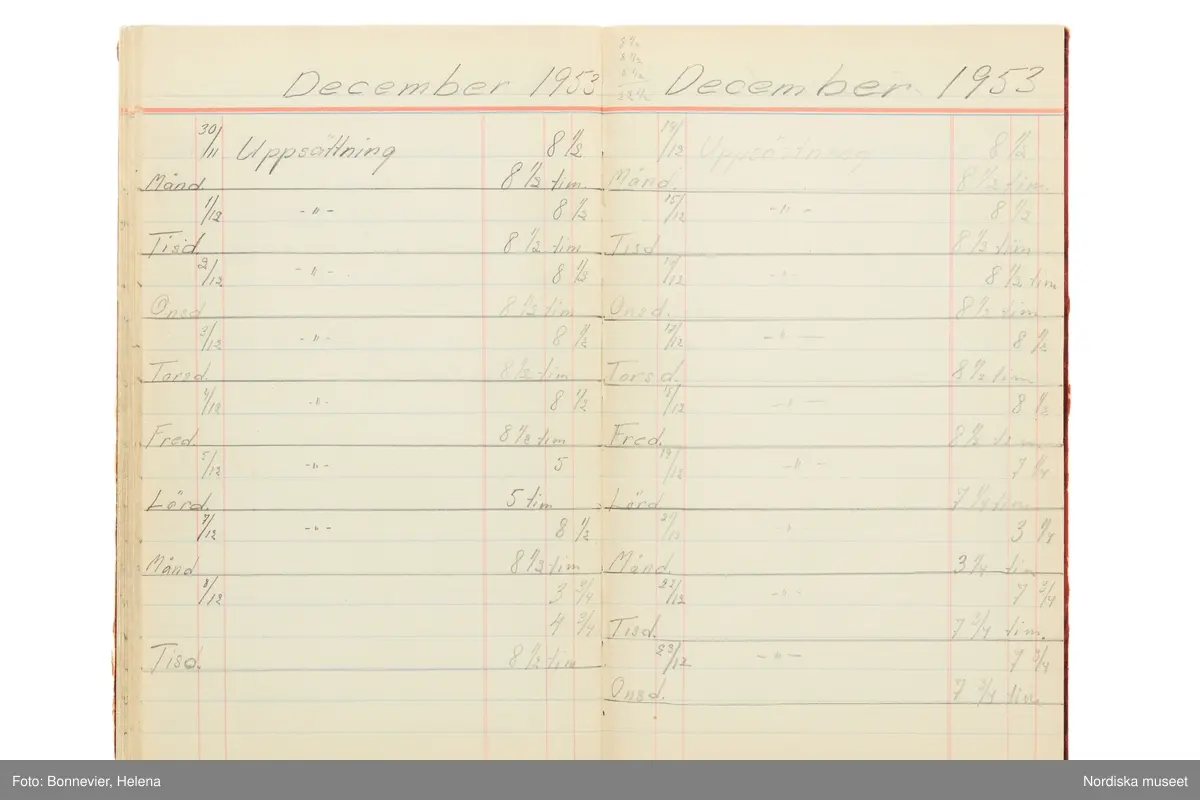 December 1953
30/11 Uppsättning 8 1/2
Månd. 8 1/2 tim.
1/12 -"- 8 1/2
Tisd. 8 1/2 tim
2/12 -"- 8 1/2
Onsd 8 1/2 tim
3/12 -"- 8 1/2
Torsd. 8 1/2 tim
4/12 -"- 8 1/2
Fred. 8 1/2 tim
5/12 -"- 5
Lörd. 5 tim
7/12 -"- 8 1/2
Månd 8 1/2 tim
8/12 3 3/4
4 3/4
Tisd. 8 1/2 tim
December 1953
14/12 Uppsättning 8 1/2
Månd. 8 1/2 tim.
15/12 -"- 8 1/2
Tisd 8 1/2 tim
16/12 -"- 8 1/2 tim
Onsd. 8 1/2 tim
17/12 -"- 8 1/2
Torsd. 8 1/2 tim
18/12 -"- 8 1/2
Fred. 8 1/2 tim
19/12 -"- 7 1/4
Lörd 7 1/4 tim
21/12 " 3 1/4
Månd. 3 1/4 tim
22/12 -"- 7 3/4
Tisd. 7 3/4 tim.
23/12 -"- 7 3/4
Onsd. 7 3/4 tim
Foto: Bonnevier, Helena
Nordiska museet